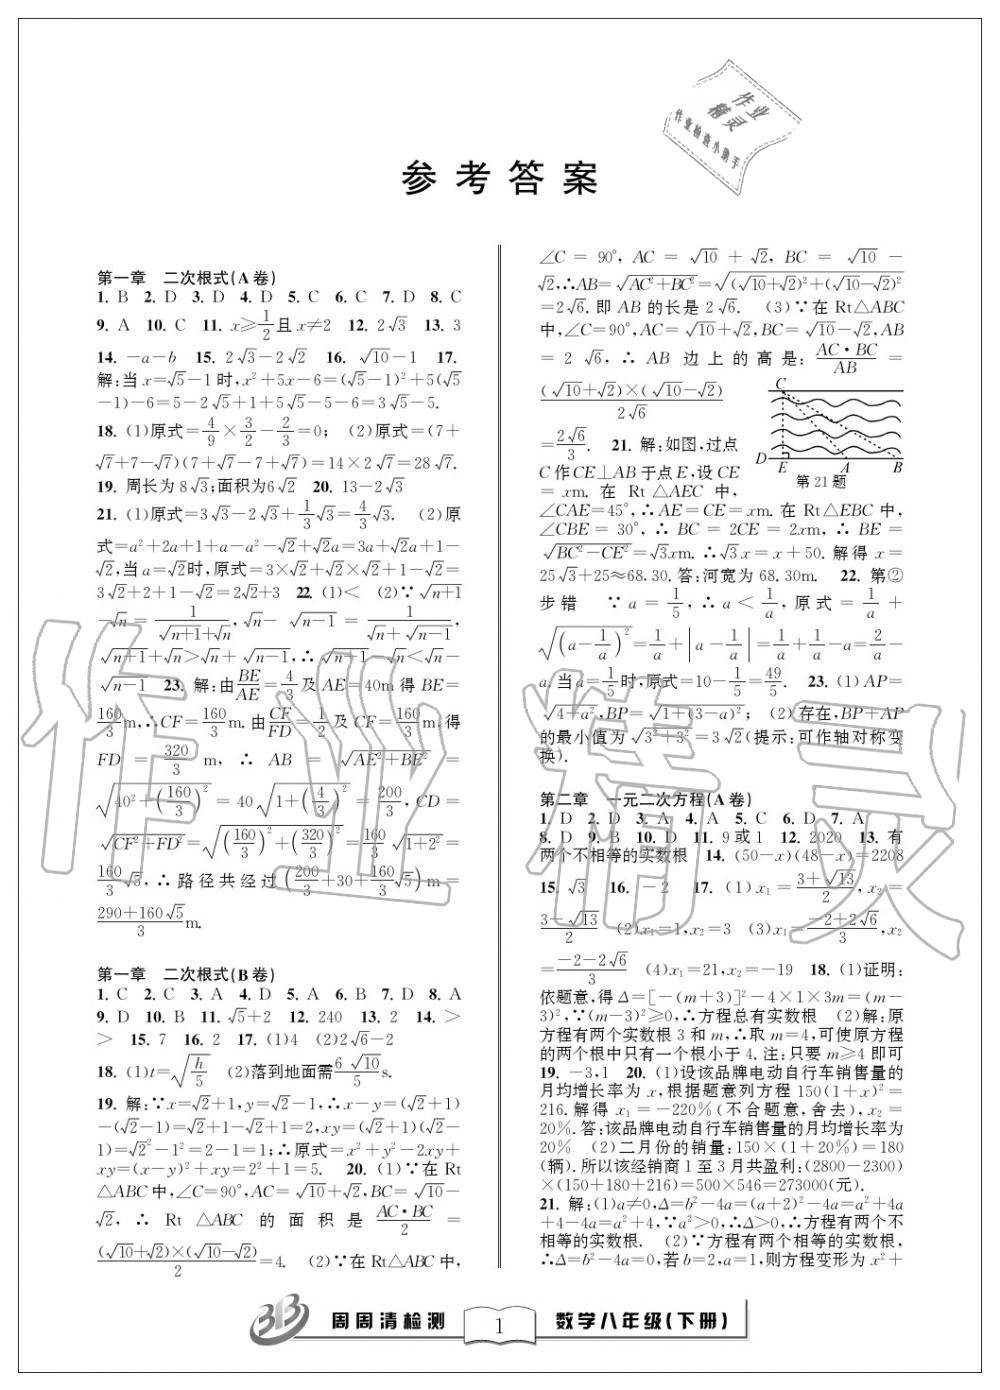 作业
精灵
作业检查小助手
参考答案
第一章 二次根式(A卷)
1. B 2. D 3. D 4. D 5. C 6. C 7. D 8. C
9. A 10. C 11. x≥1/2且x≠2 12. 2√3 13. 3
14. -a-b 15. 2√3-2√2 16. √10-1 17.
解:当x=√5-1时,x²+5x-6=(√5-1)²+5(√5
-1)-6=5-2√5+1+5√5-5-6=3√5-5.
18. (1)原式=4/9×3/2-2/3=0; (2)原式=(7+
√7+7-√7)(7+√7-7+√7)=14×2√7=28√7.
19. 周长为8√3;面积为6√2 20. 13-2√3
21. (1)原式=3√3-2√3+1/3√3=4/3√3. (2)原
式=a²+2a+1+a-a²-√2+√2a=3a+√2a+1-
√2,当a=√2时,原式=3×√2+√2×√2+1-√2=
3√2+2+1-√2=2√2+3 22. (1)< (2)∵√n+1
-√n=1/(√n+1+√n),√n-√n-1=1/(√n+√n-1),
√n+1+√n>√n+√n-1,∴√n+1-√n<√n-
√n-1 23. 解:由BE/AE=4/3及AE=40m得BE=
160/3m,∴CF=160/3m.由CF/FD=1/2及CF=160/3m,得
FD=320/3m,∴AB=√(AE²+BE²)=
√(40²+(160/3)²)=40√(1+(4/3)²)=200/3,CD=
√(CF²+FD²)=√((160/3)²+(320/3)²)=160/3√(1+2²)=
160/3√5,∴路径共经过(200/3+30+160/3√5)m=
(290+160√5)/3m.
第一章 二次根式(B卷)
1. C 2. C 3. A 4. D 5. A 6. B 7. D 8. A
9. D 10. B 11. √5+2 12. 240 13. 2 14. >
> 15. 7 16. 2 17. (1)4 (2)2√6-2
18. (1)t=√(h/5) (2)落到地面需6√10/5s.
19. 解:∵x=√2+1,y=√2-1,∴x-y=(√2+1)
-(√2-1)=√2+1-√2+1=2,xy=(√2+1)(√2-
1)=√2²-1²=2-1=1;∴原式=x²+y²-2xy+
xy=(x-y)²+xy=2²+1=5. 20. (1)∵在Rt
△ABC中,∠C=90°,AC=√10+√2,BC=√10-
√2,∴Rt△ABC的面积是AC·BC/2=
(√10+√2)×(√10-√2)/2=4. (2)∵在Rt△ABC中,
∠C=90°,AC=√10+√2,BC=√10-
√2,∴AB=√(AC²+BC²)=√((√10+√2)²+(√10-√2)²)
=2√6.即AB的长是2√6. (3)∵在Rt△ABC
中,∠C=90°,AC=√10+√2,BC=√10-√2,AB
=2√6,∴AB边上的高是:AC·BC/AB=
(√10+√2)×(√10-√2)/2√6
=2√6/3. 21. 解:如图,过点
C作CE⊥AB于点E,设CE
=xm.在Rt△AEC中,
∠CAE=45°,∴AE=CE=xm.在Rt△EBC中,
∠CBE=30°,∴BC=2CE=2xm,∴BE=
√(BC²-CE²)=√3xm.∴√3x=x+50.解得x=
25√3+25≈68.30.答:河宽为68.30m. 22. 第②
步错 ∵a=1/5,∴a<1/a,原式=1/a+
√((a-1/a)²)=1/a+|a-1/a|=1/a+1/a-a=2/a-
a.当a=1/5时,原式=10-1/5=49/5. 23. (1)AP=
√(4+a²),BP=√(1+(3-a)²); (2)存在,BP+AP
的最小值为√(3²+3²)=3√2(提示:可作轴对称变
换).
C
D E A B
第21题
第二章 一元二次方程(A卷)
1. D 2. D 3. A 4. A 5. C 6. D 7. A
8. D 9. B 10. D 11. 9或1 12. 2020 13. 有
两个不相等的实数根 14. (50-x)(48-x)=2208
15. √3 16. -2 17. (1)x₁=(3+√13)/2,x₂=
(3-√13)/2 (2)x₁=1,x₂=3 (3)x₁=(-2+2√6)/3,x₂
=(-2-2√6)/3 (4)x₁=21,x₂=-19 18. (1)证明:
依题意,得Δ=[-(m+3)]²-4×1×3m=(m-
3)²,∵(m-3)²≥0,∴方程总有实数根 (2)解:原
方程有两个实数根3和m,∴取m=4,可使原方程
的两个根中只有一个根小于4.注:只要m≥4即可
19. -3,1 20. (1)设该品牌电动自行车销售量的
月均增长率为x,根据题意列方程150(1+x)²=
216.解得x₁=-220%(不合题意,舍去),x₂=
20%.答:该品牌电动自行车销售量的月均增长率为
20% (2)二月份的销量:150×(1+20%)=180
(辆).所以该经销商1至3月共盈利:(2800-2300)
×(150+180+216)=500×546=273000(元).
21. 解:(1)a≠0,Δ=b²-4a=(a+2)²-4a=a²+4a
+4-4a=a²+4,∵a²>0,∴Δ>0,∴方程有两个不
相等的实数根. (2)∵方程有两个相等的实数根,
∴Δ=b²-4a=0,若b=2,a=1,则方程变形为x²+
周周清检测 1 数学八年级(下册)
作业精灵